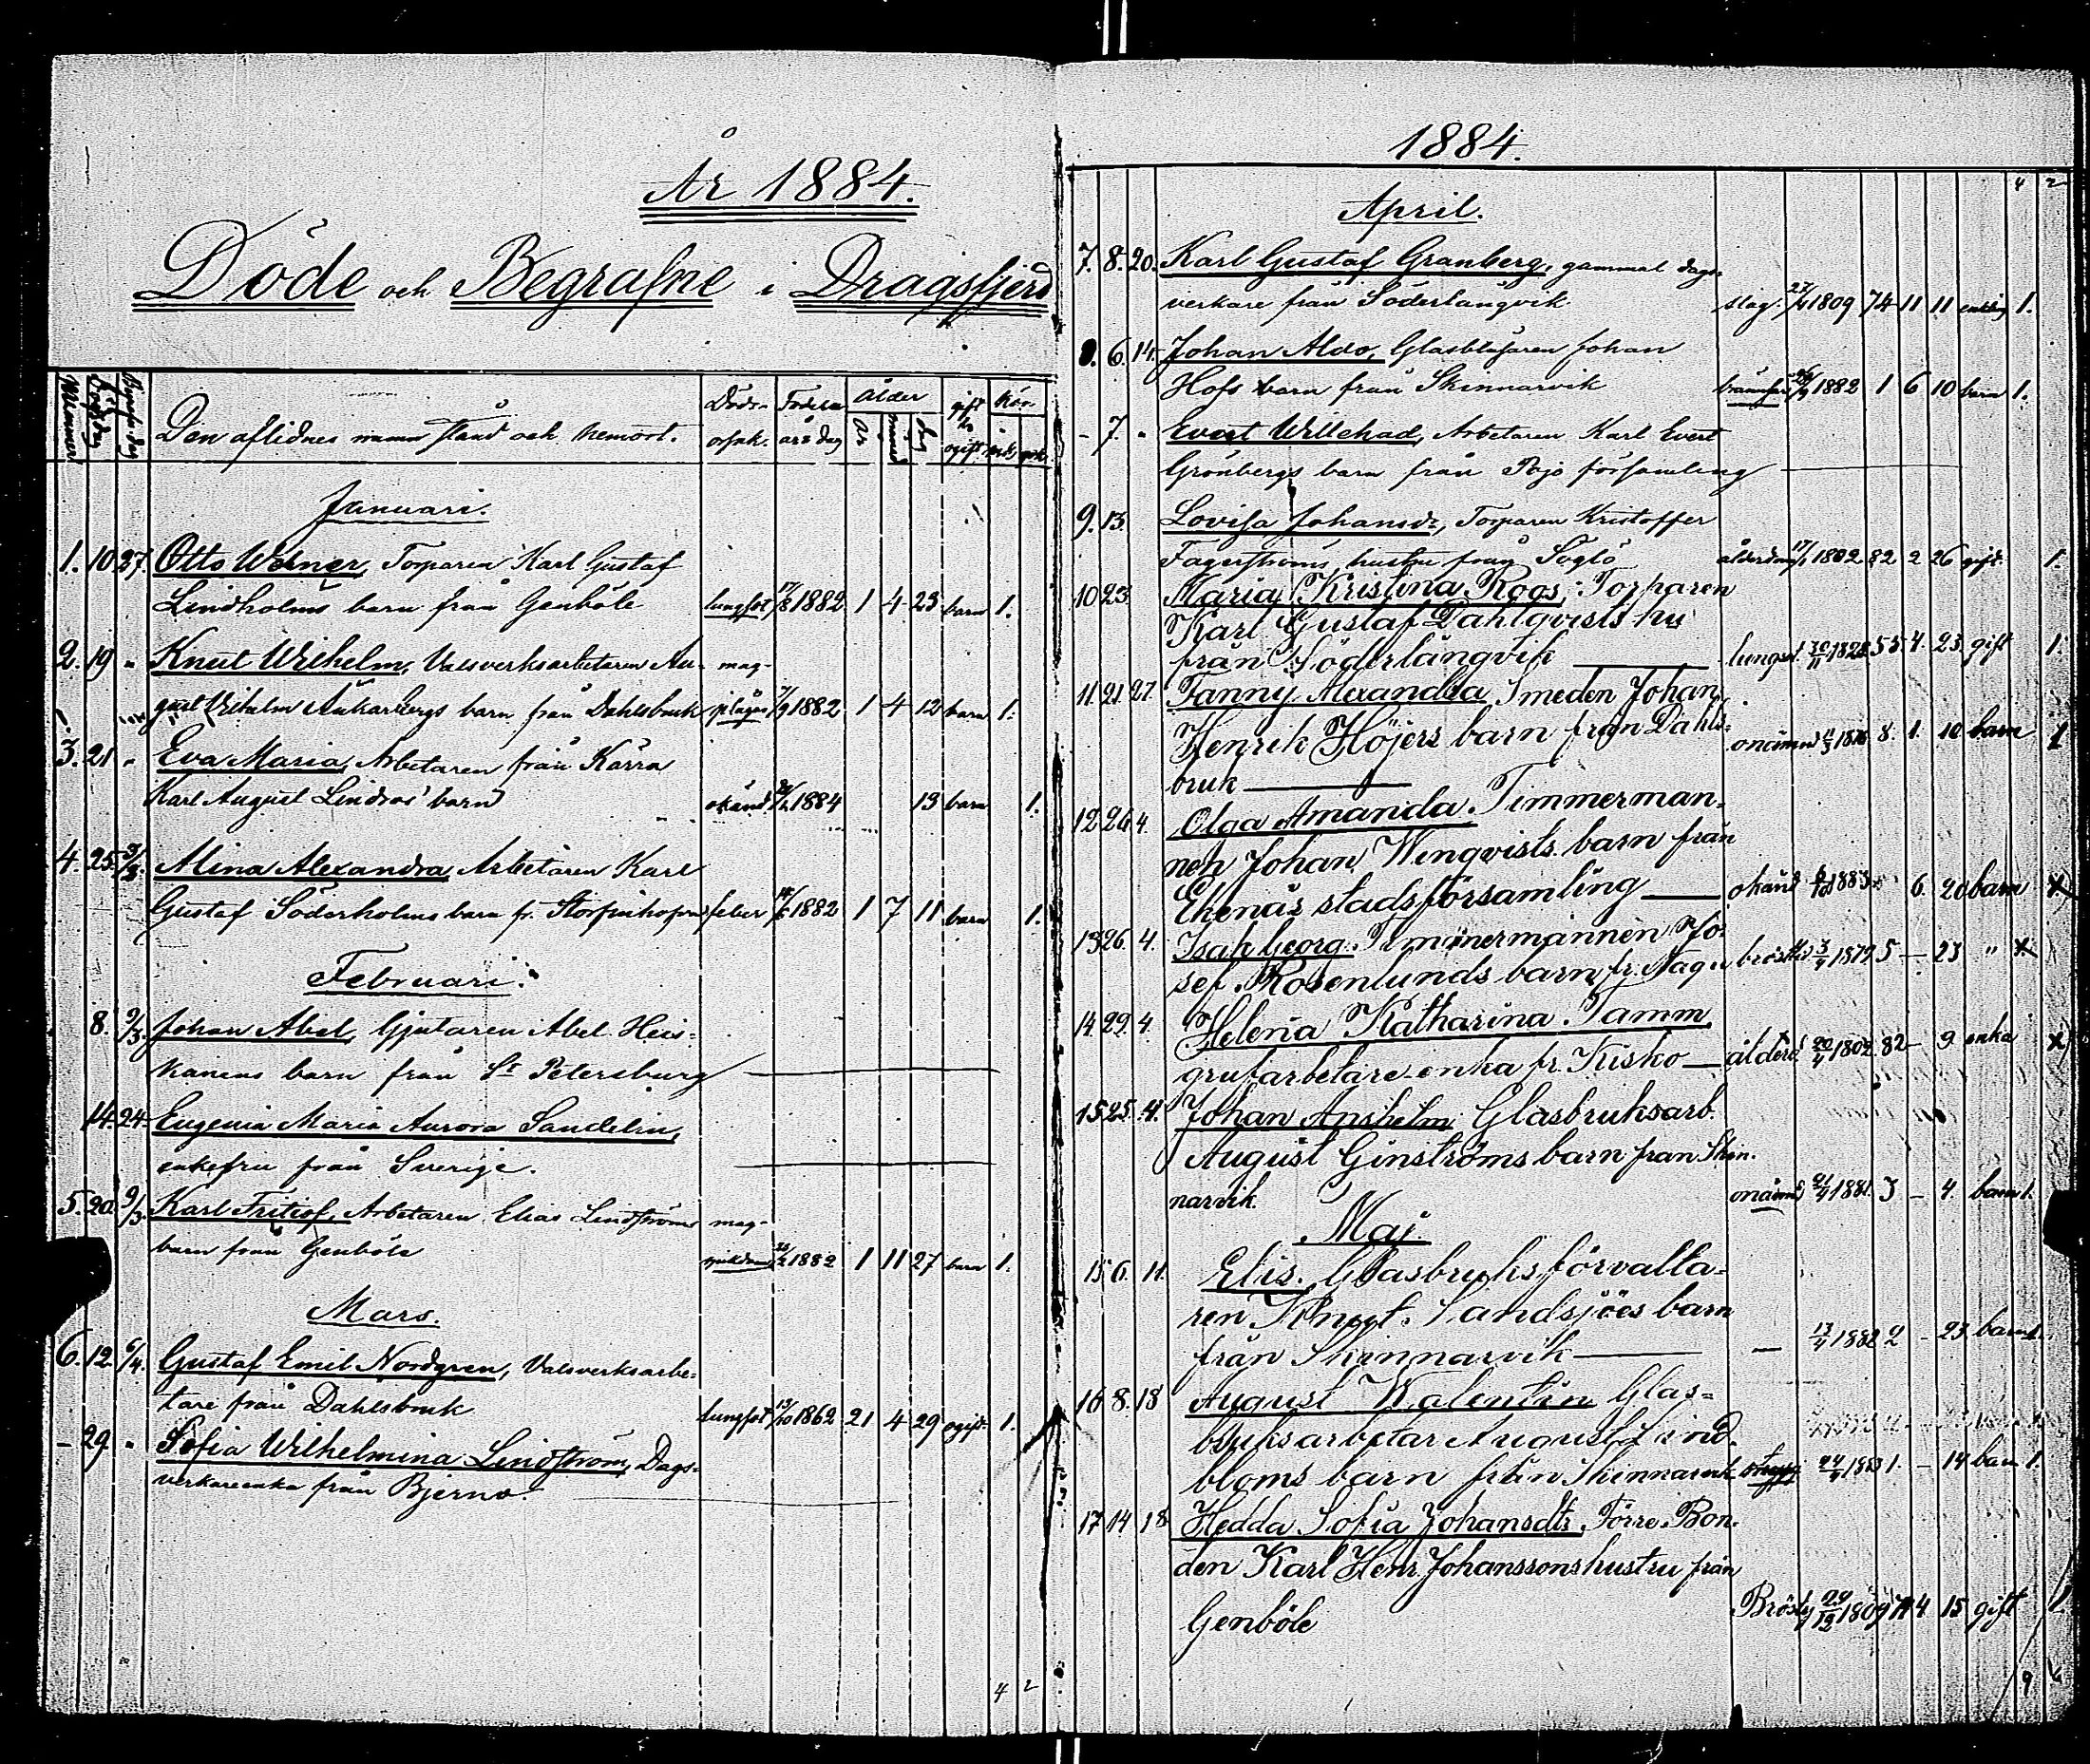 År 1884.
Döde och Begrafne i Dragsfjerd
Nummer
Dödsdag
Begrafn. dag
Den aflidnes namn stånd och hemort.
Döds-
orsak.
Födelse
år o dag
Ålder
År
månad
dag
gift
ogift
Kön
mk
qvk
Januari.
1. 10. 27. Otto Werner, Torparen Karl Gustaf
Lindholms barn från Genböle lungsot 17/8 1882 1 4 23 barn 1.
2. 19 " Knut Wilhelm, Valsverksarbetaren Au- mag-
gust Vilhelm Ankarbergs barn från Dahlsbruk plågor 7/9 1882 1 4 12 barn 1.
3. 21 " Eva Maria, Arbetaren från Kärra
Karl August Lindros' barn okänd 1884 13 barn 1.
4. 25. Alina Alexandra, Arbetaren Karl
Gustaf Söderholms barn fr. feber 14/6 1882 1 7 11 barn 1.
Februari.
8. 9/3. Johan Abiel, Gjutaren Abel Heis-
kanens barn från St Petersburg
14. 24. Eugenia Maria Aurora Sandelin,
enkefru från Sverige.
5. 20. 9/3. Karl Fritiof, Arbetaren Elias Lindströms mag-
barn från Genböle sjukdom 1882 1 11 27 barn 1.
Mars.
6. 12. 6/4. Gustaf Emil Nordgren, Valsverksarbe-
tare från Dahlsbruk lungsot 13/10 1862 21 4 29 ogift 1.
- 29. " Sofia Wilhelmina Lindström, Dags-
verkareenka från Bjerno.
4 2
1884.
4 2
April.
7. 8. 20. Karl Gustaf Granberg, gammal dags-
verkare från Söderlångvik slag. 27/4 1809 74 11 11 enkling 1.
8. 6. 14. Johan Aldo, Glasblåsaren Johan
Hofs barn från Skinnarvik 26/9 1882 1 6 10 barn 1.
- 7. " Evert Willehad, Arbetaren Karl Evert
Grönbergs barn från Pojo församling
9. 13. Lovisa Johansdr, Torparen Kristoffer
Fagerströms hustru från ålderdom 17/1 1802 82 2 26 gift. 1.
10 23 Maria Kristina Roos, Torparen
Karl Gustaf Dahlqvists hu
från Söderlångvik lungsot 30/11 1828 55 4. 23. gift 1.
11. 21. 27. Fanny Alexandra Smeden Johan
Henrik Höjers barn från Dahls-
bruk onämnd 11/3 1876 8. 1. 10 barn 1
12 26 4. Olga Amanda. Timmerman-
nen Johan Wenqvists barn från
Ekenäs stads församling okänd 6/10 1883 6. 20 barn x
13 26. 4. Isak Georg. Timmermannen Jo-
sef Rosenlunds barn fr. 3/4 1879 5 - 23 " x
14 29. 4. Helena Katharina Tamm
grufarbetare-enka fr. Kisko ålderd 20/4 1802. 82 - 9 enka x
15 25. 4. Johan Anshelm Glasbruksarb.
August Ginströms barn från Skin-
narvik. onämnd 21/4 1881. 3 - 4. barn 1.
Maj.
15 6. 11. Elis. Glasbruks förvalta-
ren Knut Sandsjöes barn
från Skinnarvik — 13/4 1882 2 - 23 barn 1.
16 8. 18 August Walentin Glas-
bruksarbetar August Lind-
bloms barn från Skinnarvik 24/4 1883 1. - 14 barn 1.
17 14 18 Hedda Sofia Johansdtr, Förre Bon-
den Karl Henr. Johanssons hustru från
Genböle 29/12 1809 74 4 15 gift 1
9 6